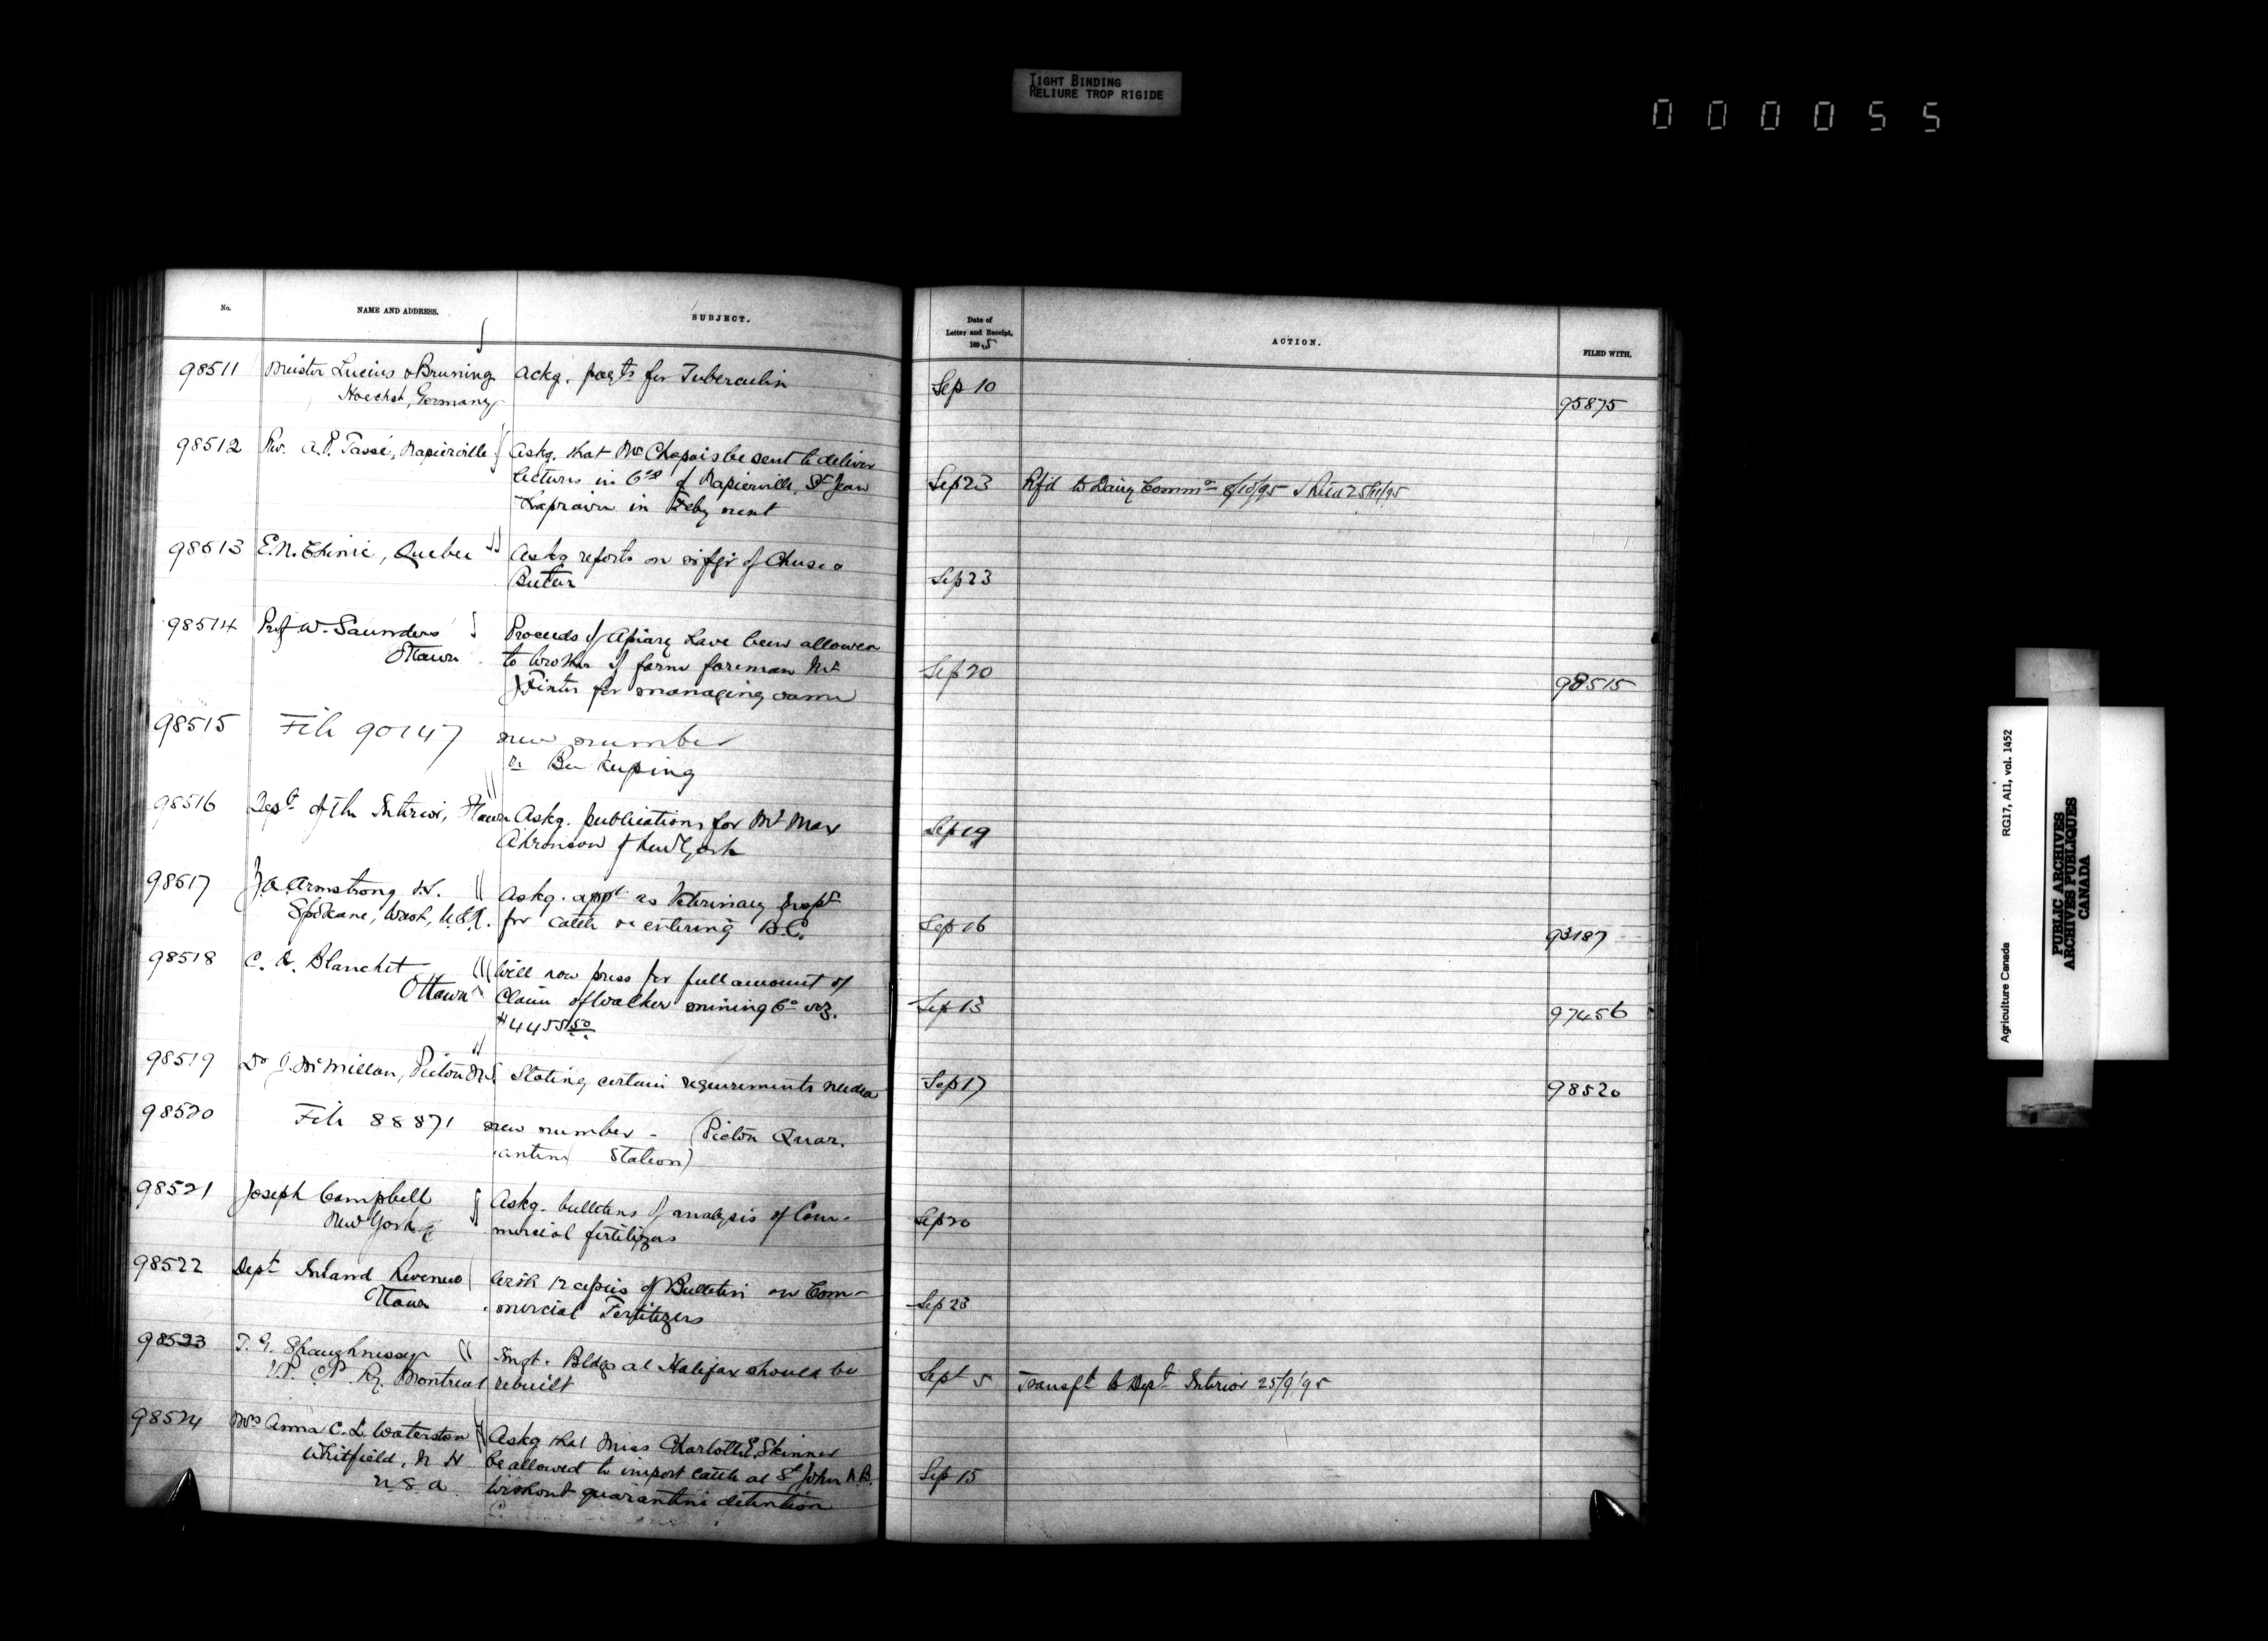 TIGHT BINDING
RELIURE TROP RIGIDE
000055
No.
NAME AND ADDRESS.
SUBJECT.
Date of
Letter and Receipt,
1895
ACTION.
FILED WITH.
98511 Meister Lucius & Bruning Ackg. payts for Tuberculin Sep 10
Hoechst, Germany 95875
98512 Rev. A.P. Tassé, Napierville Askg. that Mr Chapais be sent to deliver
lectures in Cos of Napierville, St Jean Sep 23 Rf'd to Dairy Commr 8/10/95
Laprairie in Feby next
98513 E.N. Chinic, Quebec Askg reports on of Cheese &
Butter Sep 23
98514 Prof W. Saunders Proceeds of Apiary have been allowed
Ottawa to brother of farm foreman Mr Sep 20
Fixter for managing same 98515
98515 File 90147 new number
re Bee Keeping
98516 Dept of the Interior, Ottawa Askg. publications for Mr Max Sep 19
Ahronson of New York
98517 J.A. Armstrong V.S. Askg. appt as Veterinary Inspr
Spokane, Wash, U.S.A. for cattle entering B.C. Sep 16 93187
98518 C. A. Blanchet Will now press for full amount of
Ottawa Claim of Walker mining Co viz. Sep 13 97456
$4455.50
98519 Dr J. McMillan, Pictou N.S. Stating certain requirements needed Sep 17 98520
98520 File 88871 new number - (Pictou Quar.
antine Station)
98521 Joseph Campbell Askg. bulletins of analysis of Com-
New York mercial fertilizers Sep 20
98522 Dept Inland Revenue With 12 copies of Bulletin on Com-
Ottawa mercial Fertilizers Sep 23
98523 T. G. Shaughnessy Imgt. Bldgs at Halifax should be
V.P. C.P. Ry. Montreal rebuilt Sept 5 Transfd to Dept Interior 25/9/95
98524 Mrs Anna C. L. Waterston Askg that Miss Charlotte E. Skinner
Whitfield, N H be allowed to import cattle at St John N.B. Sep 15
U.S.A. without quarantine detention
Agriculture Canada RG17, AII, vol. 1452
PUBLIC ARCHIVES
ARCHIVES PUBLIQUES
CANADA